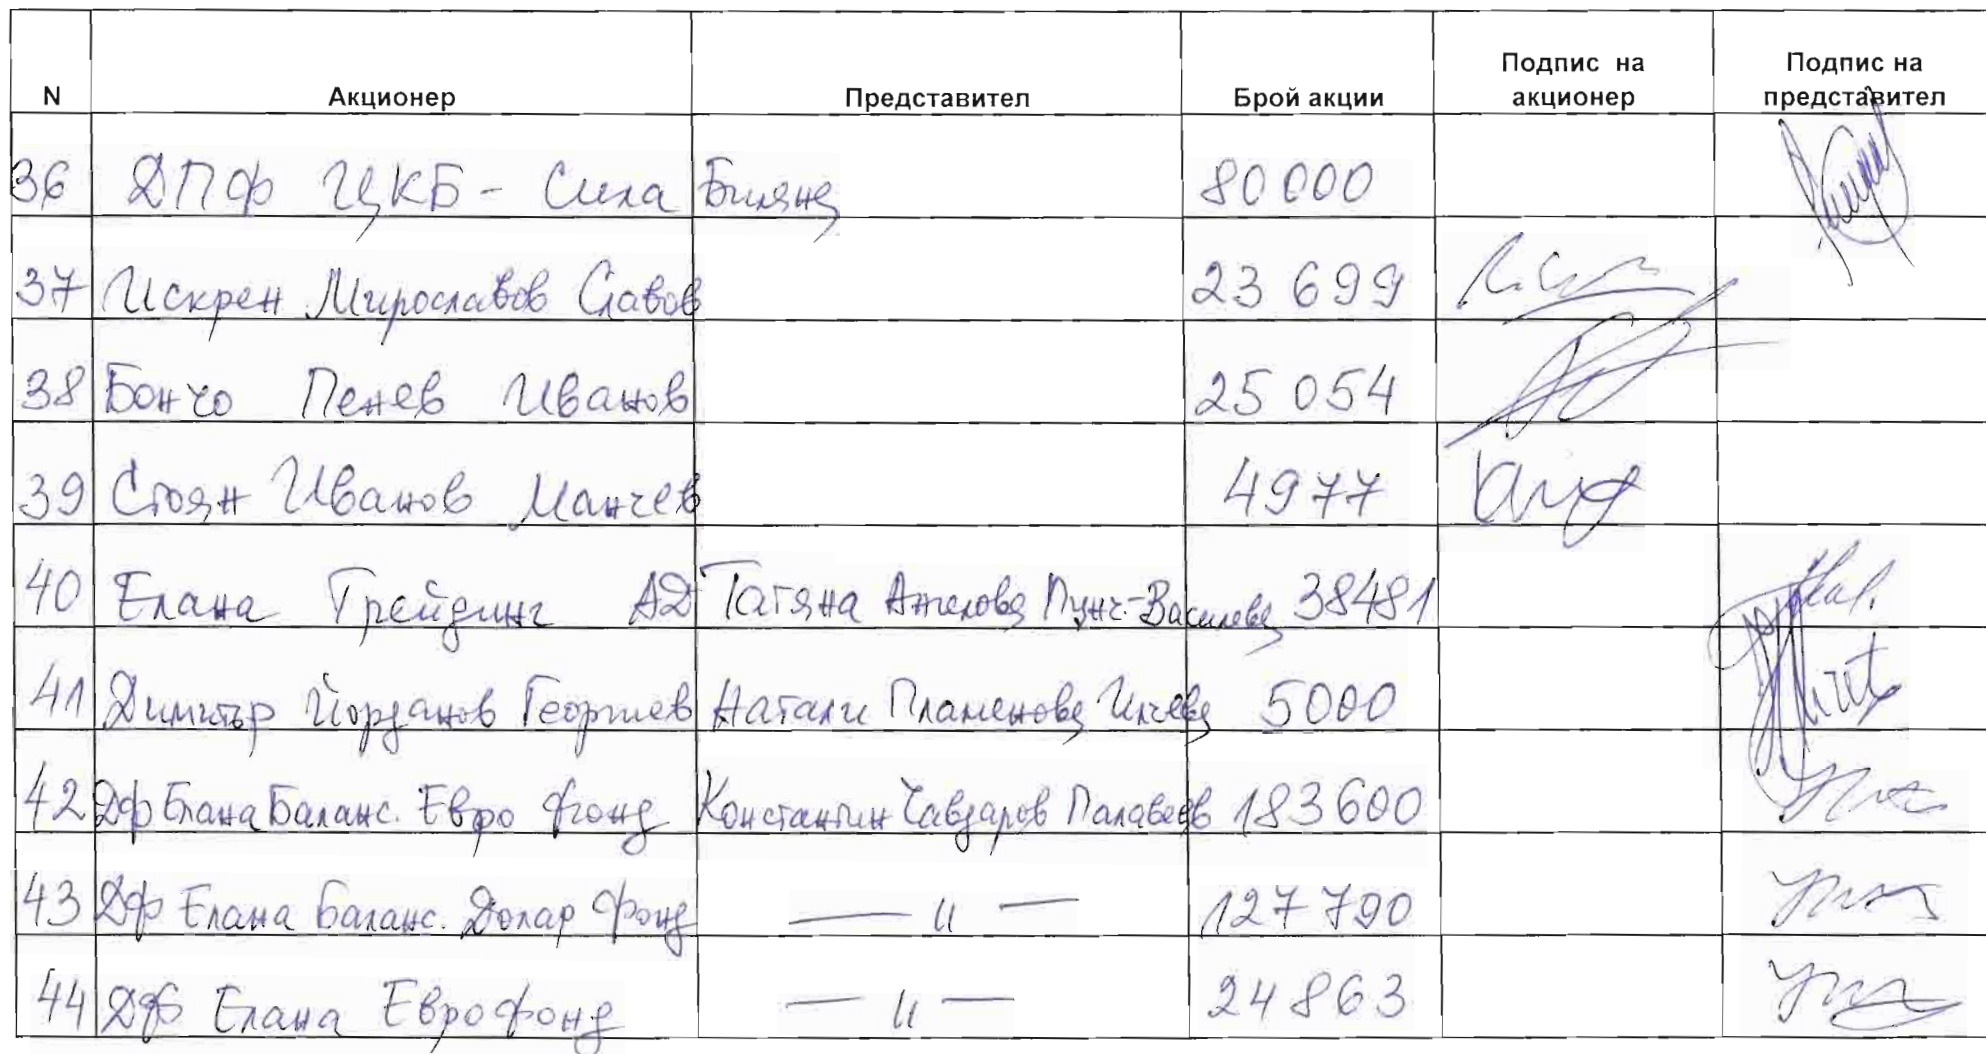 N Акционер Представител Брой акции Подпис на акционер Подпис на представител
36 ДПФ ЦКБ - Сила Биляна 80000
37 Искрен Мирославов Славов 23 699
38 Бончо Пенев Иванов 25 054
39 Стоян Иванов Манчев 4977
40 Елана Трейдинг АД Татяна Ангелова Пунч.-Василева 38481
41 Димитър Йорданов Георгиев Натали Пламенова Илчева 5000
42 Дф Елана Баланс. Евро Фонд Константин Чавдаров Палавеев 183600
43 Дф Елана Баланс. Долар Фонд — 11 — 127 790
44 Дф Елана Еврофонд — 11 — 24 863